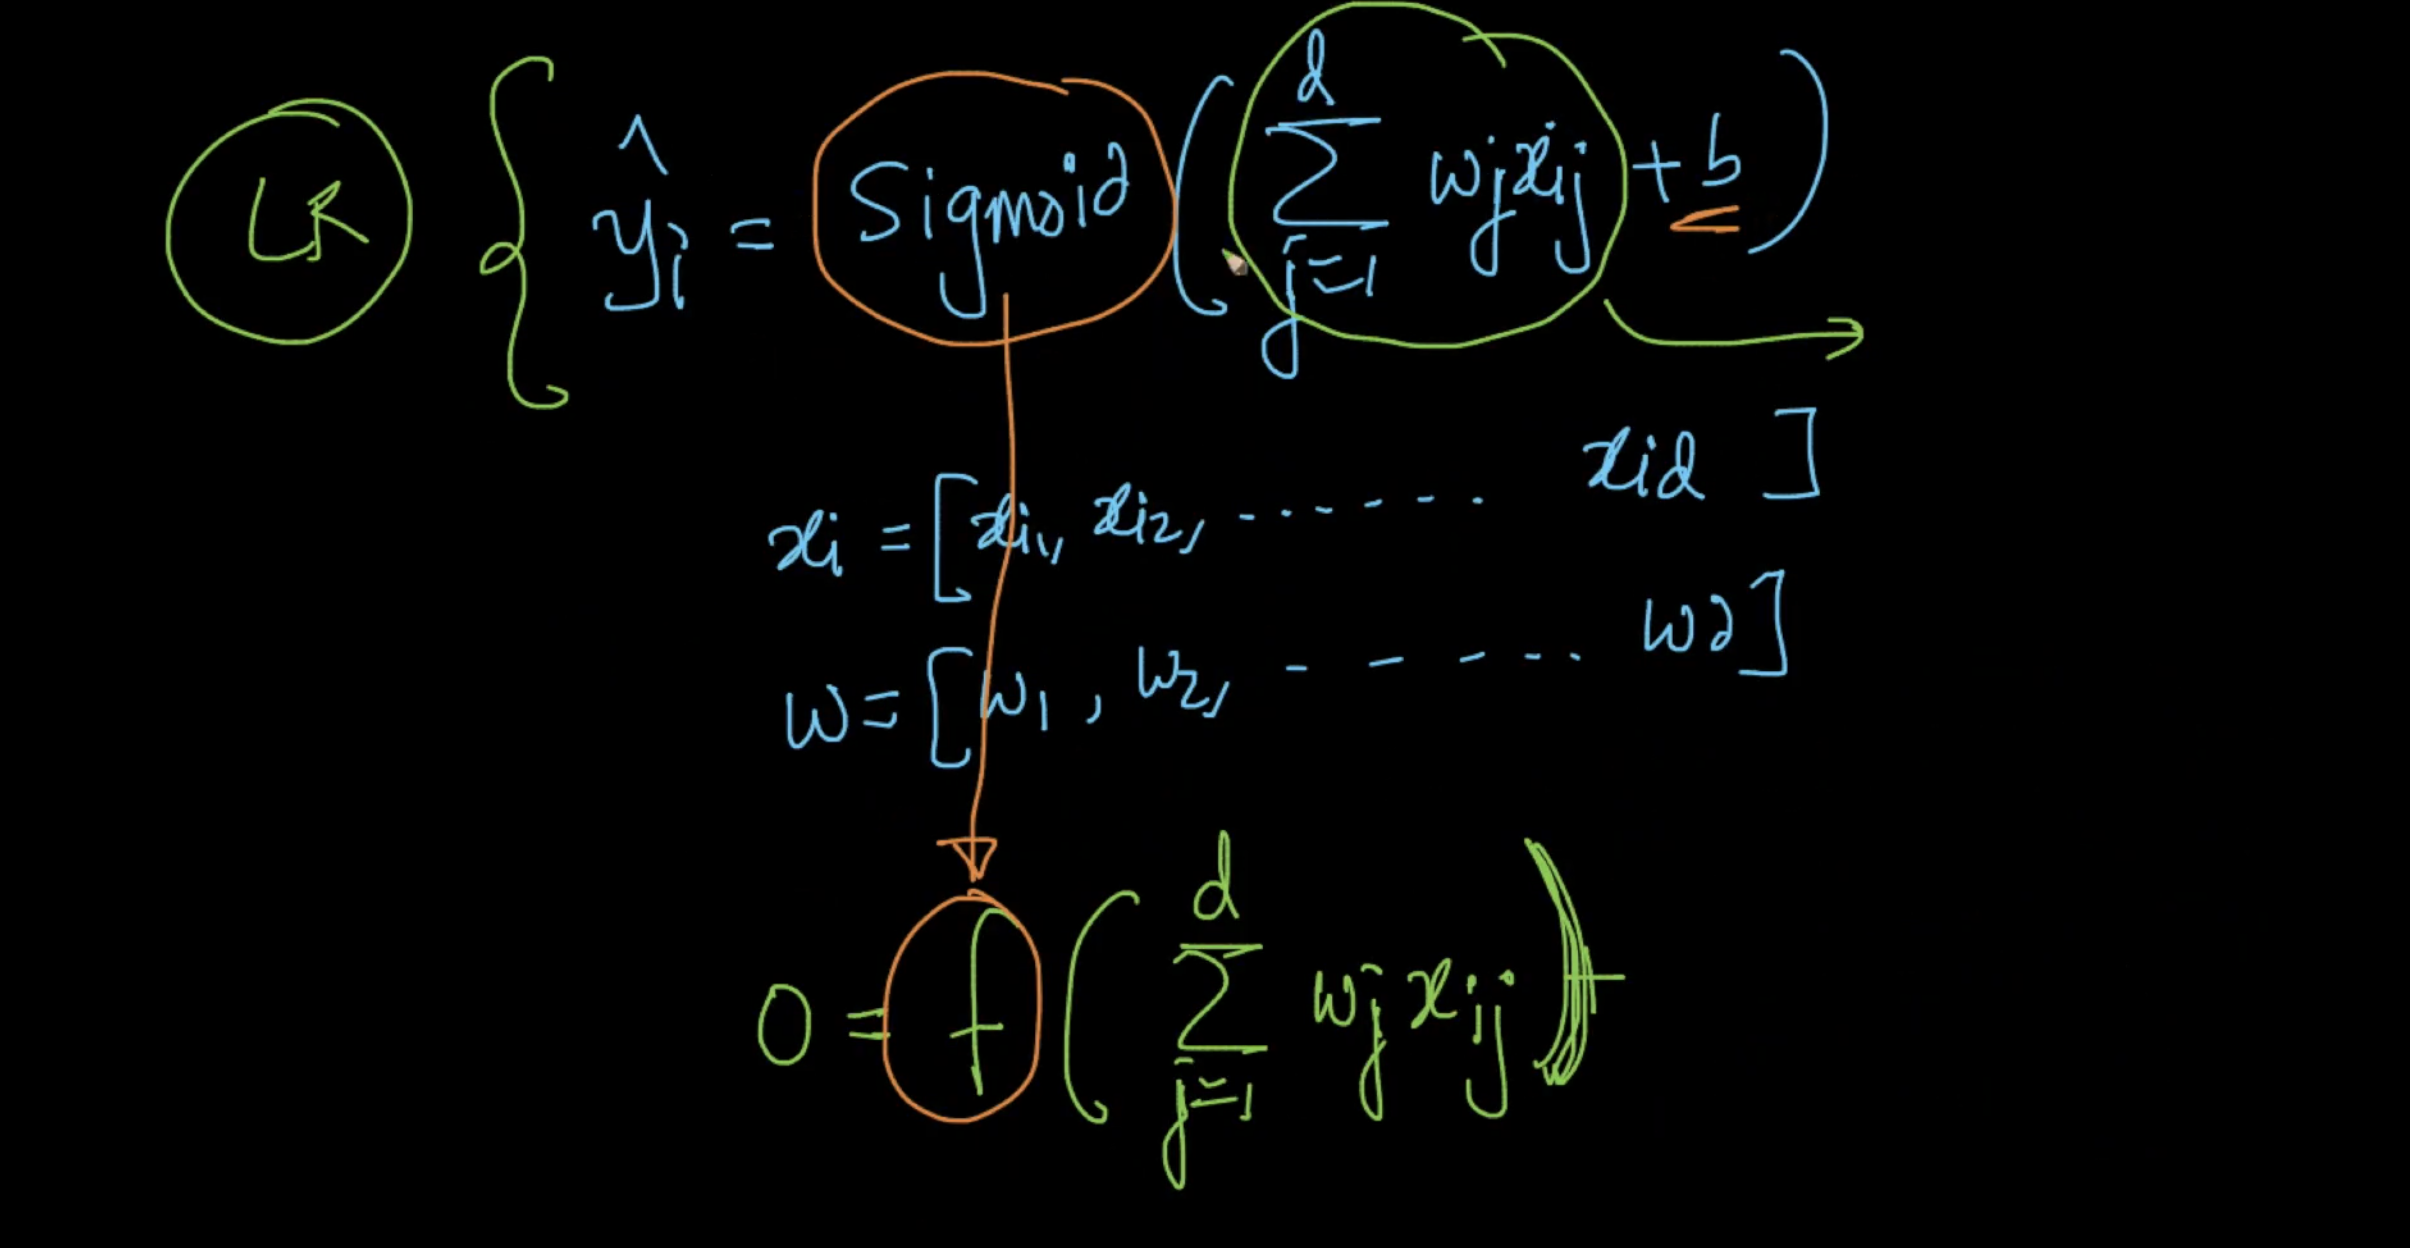 LR { ŷi = Sigmoid ( d∑j=1 wjxij + b )
xi = [xi1, xi2, ------- xid ]
w = [w1, w2, - - - - - wd]
O = f ( d∑j=1 wj xij ) +